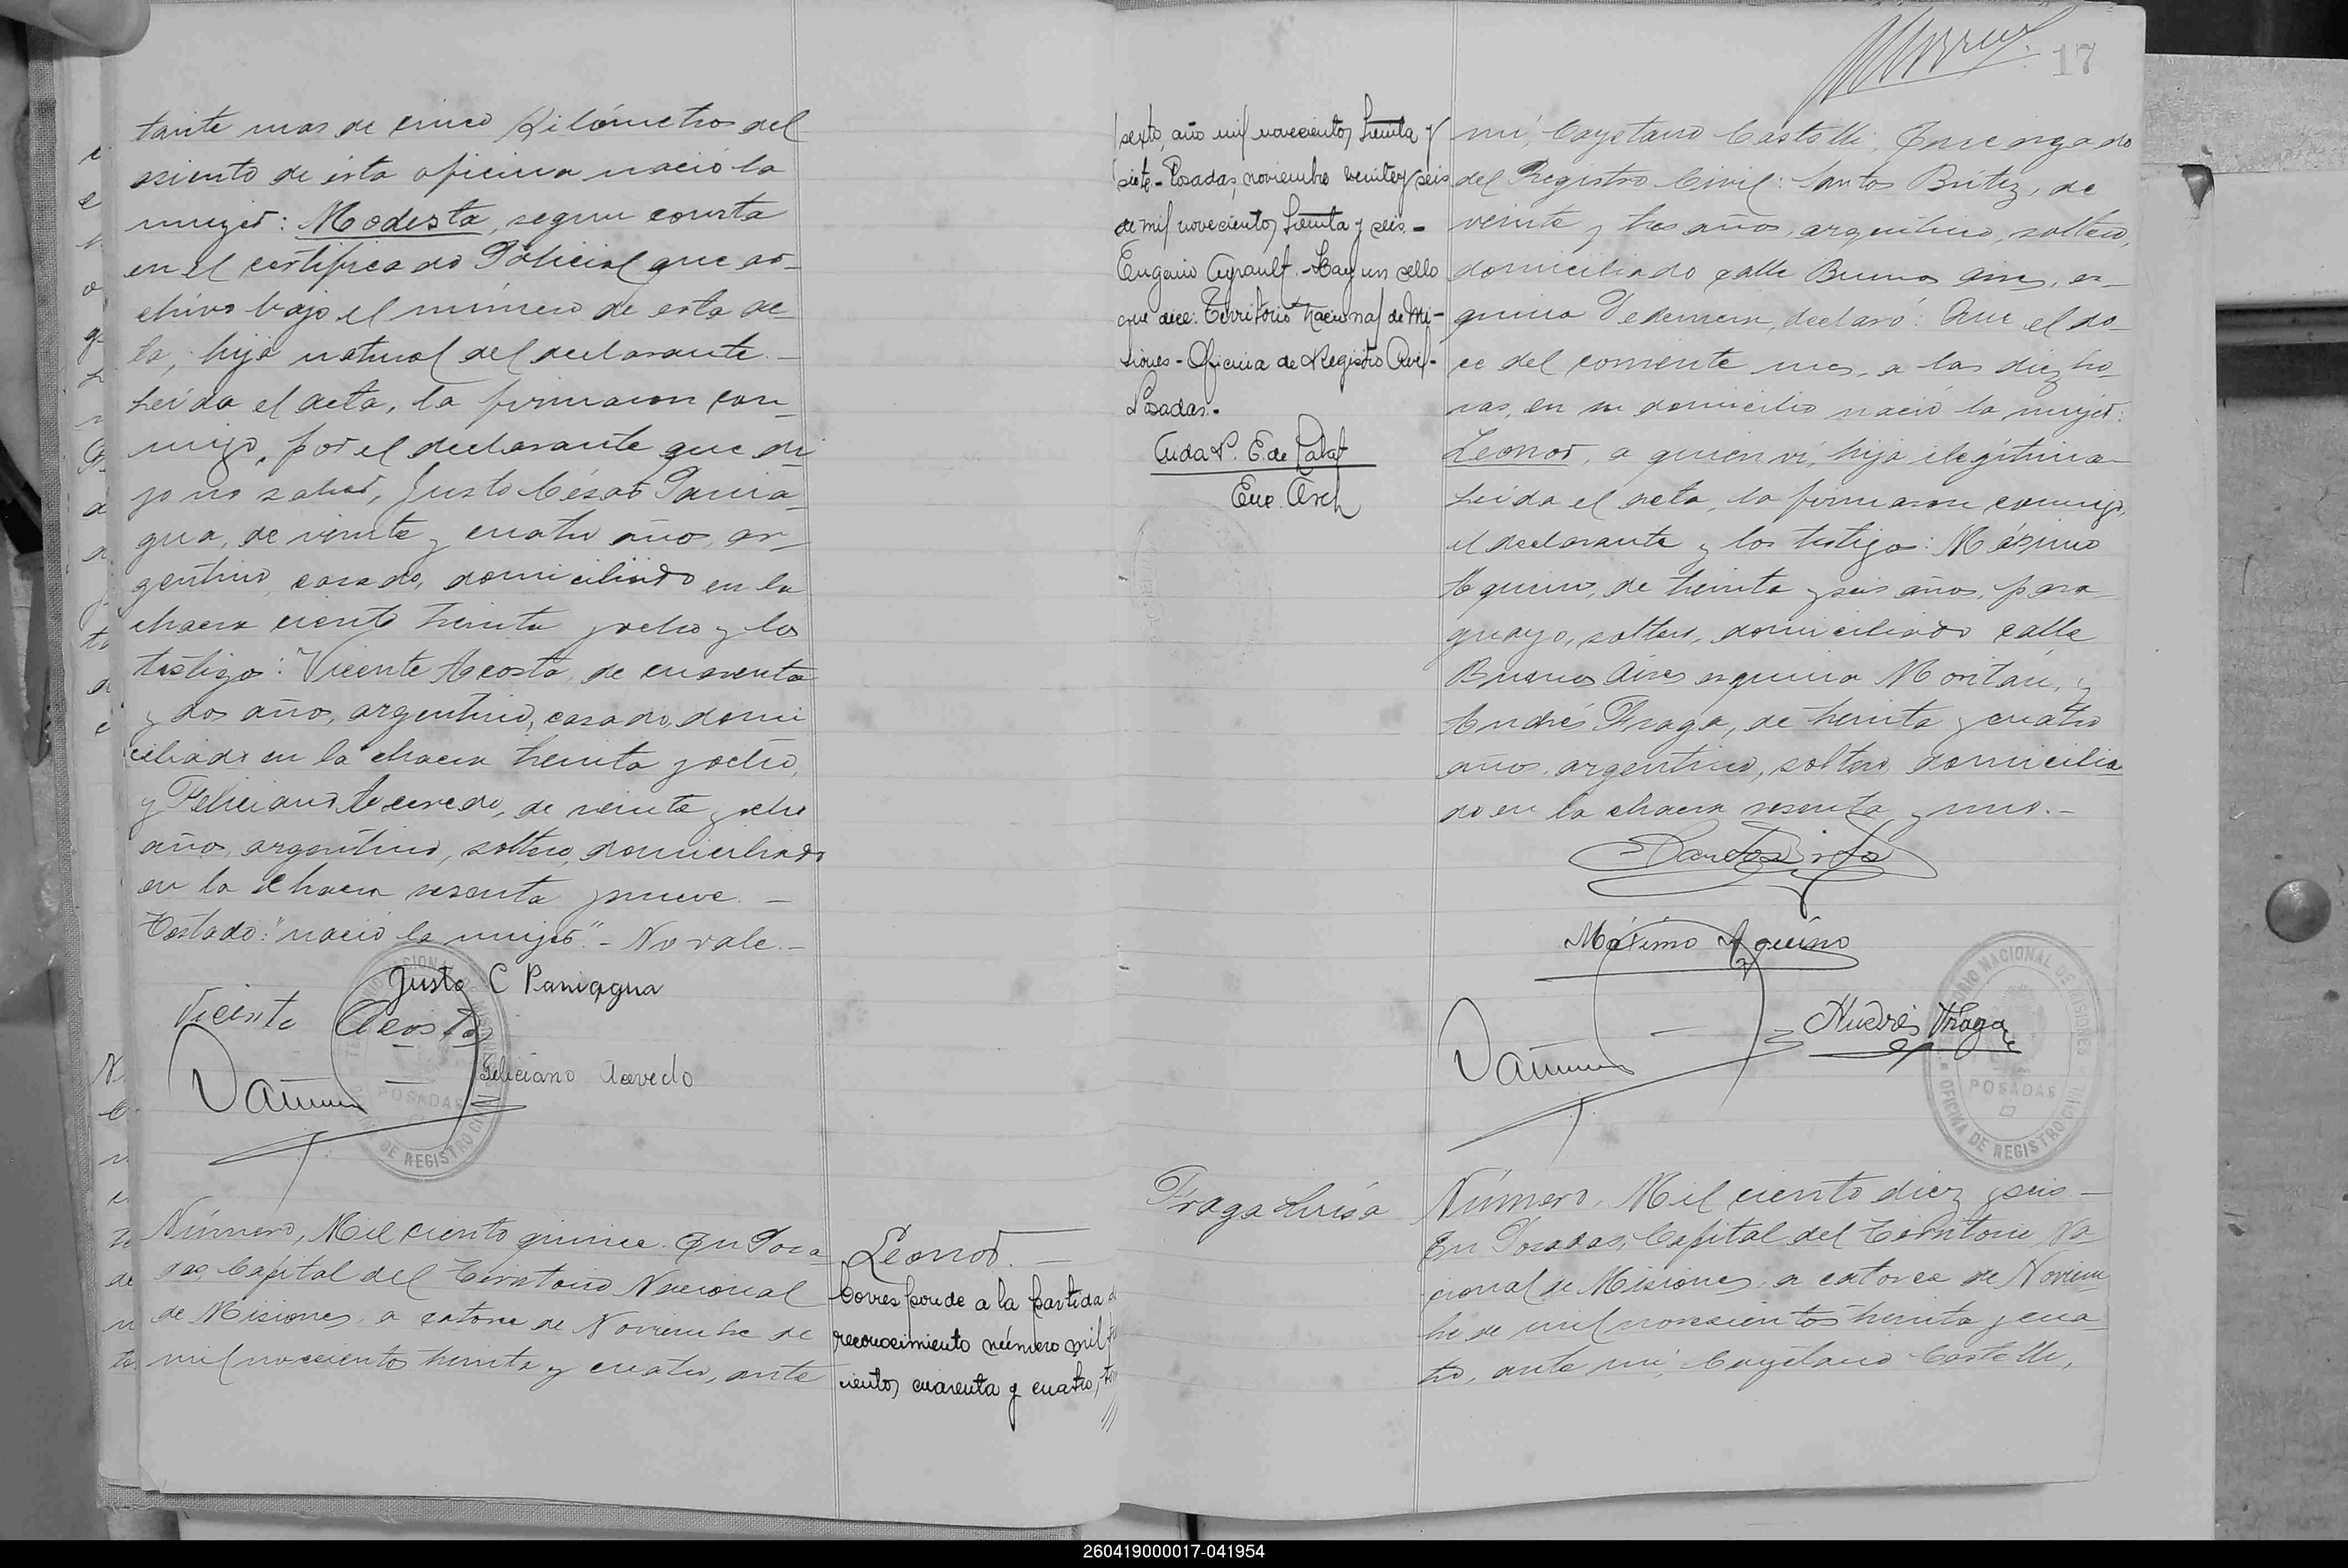 tante mas de cinco Kilómetros del
asiento de ésta oficina nació la
mujer: Modesta, segun consta
en el certificado Policial que ar-
chivo bajo el número de esta ac-
ta, hija natural del declarante.-
Leída el acta, la firmaron con-
migo, por el declarante que di-
jo no saber, Justo César Pania-
gua, de veinte y cuatro años, ar-
gentino, casado, domiciliado en la
chacra ciento treinta y ocho y los
testigos: Vicente Acosta, de cuarenta
y dos años, argentino, casado, domi
ciliado en la chacra treinta y ocho,
y Feliciano Acevedo, de veinte y ocho
años, argentino, soltero, domiciliado
en la chacra sesenta y nueve. -
Testado: "nació la mujer".- No vale.-
Justo C Paniagua
Vicente Acosta
Feliciano Acevedo
POSADAS
DE REGISTRO CIVIL
Número, Mil ciento quince. En Posa-
das, Capital del Territorio Nacional
de Misiones, a catorce de Noviembre de
mil novecientos treinta y cuatro, ante
Leonor. -
Corresponde a la partida de
reconocimiento número mil
cientos cuarenta y cuatro,
17
sexto, año mil novecientos treinta y
siete.- Posadas, noviembre veinte y seis
de mil novecientos treinta y seis.-
Eugenio Ayrault.- Hay un sello
que dice: Territorio Nacional de Mi-
siones - Oficina de Registro Civil-
Posadas.-
Enc. Arch
mí, Cayetano Castelli, Encargado
del Registro Civil: Santos Brítez, de
veinte y tres años, argentino, soltero,
domiciliado calle Buenos Aires, es-
quina declaró: Que el do-
ce del corriente mes, a las diez ho-
ras, en su domicilio nació la mujer:
Leonor, a quien ví, hija ilegítima-
Leída el acta, la firmaron conmigo,
el declarante y los testigos: Máximo
Aquino, de treinta y seis años, para
guayo, soltero, domiciliado calle
Buenos Aires esquina y
Andrés Fraga, de treinta y cuatro
años, argentino, soltero, domicilia
do en la chacra sesenta y uno.-
Máximo Aquino
Andrés Fraga
TERRITORIO NACIONAL DE MISIONES
POSADAS
OFICINA DE REGISTRO CIVIL
Fraga Luisa
Número, Mil ciento diez y seis.-
En Posadas, Capital del Territorio Na
cional de Misiones, a catorce de Noviem-
bre de mil novecientos treinta y cua-
tro, ante mí, Cayetano Castelli,
260419000017-041954